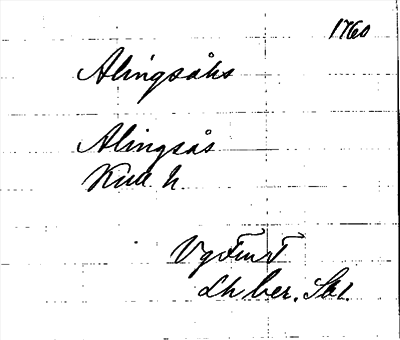 1760
Alingsåhs
Alingsås
Kull h
Vg
Lh ber. Skr.